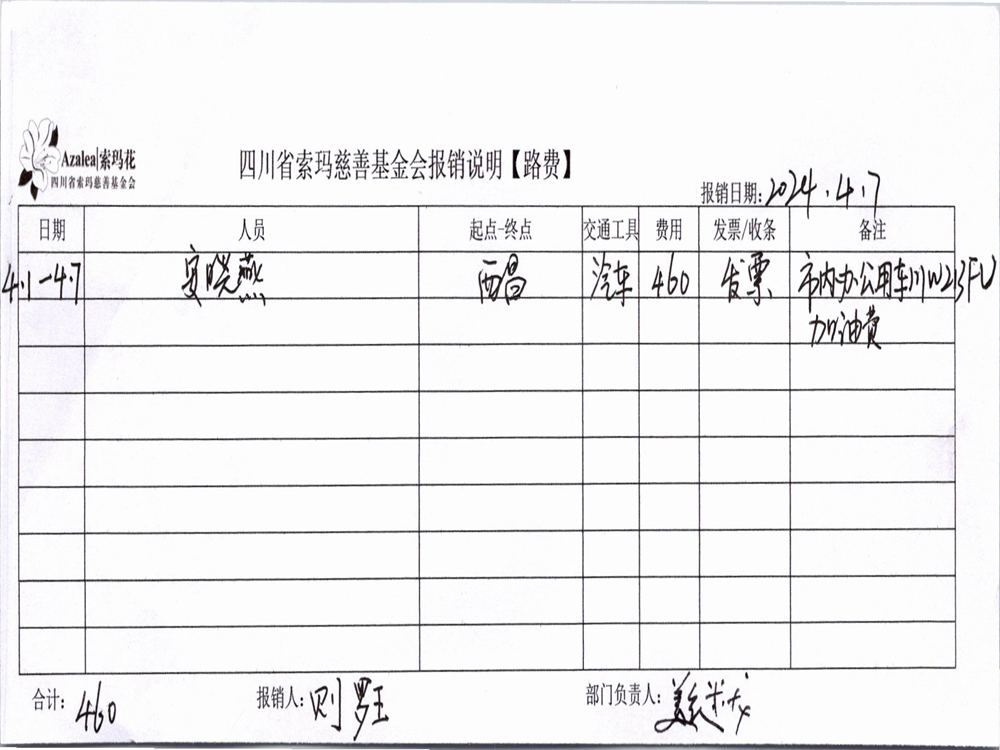 Azalea|索玛花
四川省索玛慈善基金会
四川省索玛慈善基金会报销说明【路费】
报销日期: 2024.4.7
日期 人员 起点-终点 交通工具 费用 发票/收条 备注
4.1-4.7 安晓燕 西昌 汽车 460 发票 市内办公用车川W213FU
加油费
合计: 460 报销人: 则罗王 部门负责人: